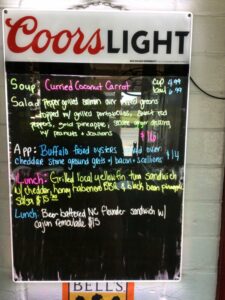 Coors LIGHT
Soup: Curried Coconut Carrot cup 4.99
bowl 6.99
Salad: Pepper grilled salmon over mixed greens
topped w/ grilled portobellos, roasted red
peppers, grilled pineapple,
w/ peanuts + scallions $16
App: Buffalo fried oysters over
cheddar stone ground grits w/ bacon + scallions $14
Lunch: Grilled local yellowfin tuna sandwich
w/ cheddar, honey habenero BBQ & black bean pineapple
salsa $15
Lunch: Beer battered NC flounder sandwich w/
cajun remoulade $15
BELL'S